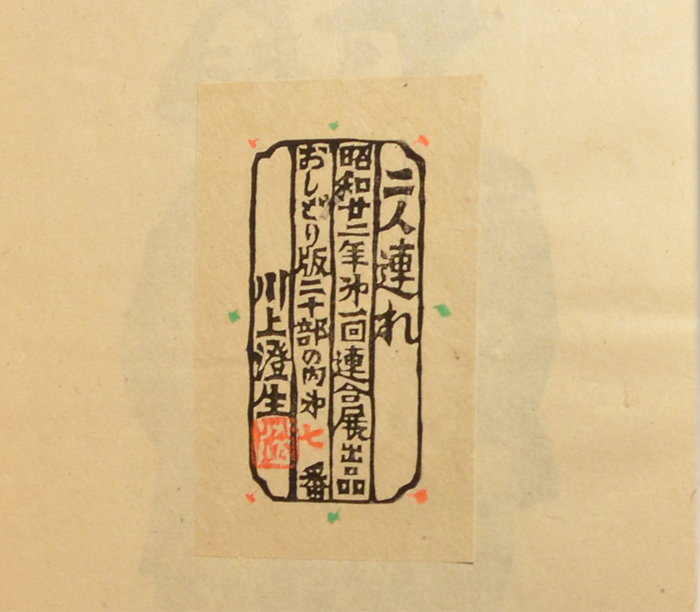 二人連れ
昭和廿二年㐧一回連合展出品
おしどり版二十部の内㐧七番
川上澄生